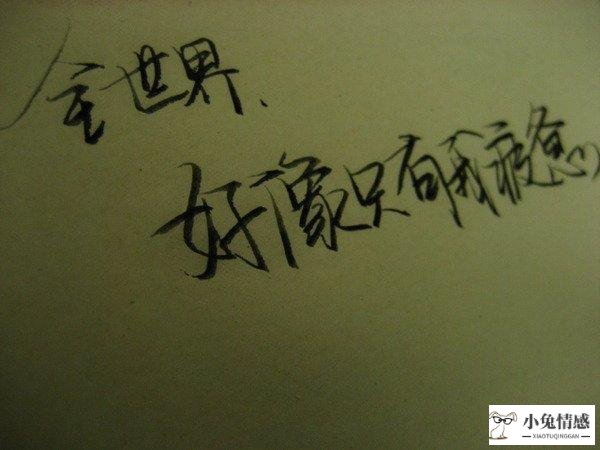 全世界、
好像只有我疲惫
小兔情感
XIAOTUQINGGAN